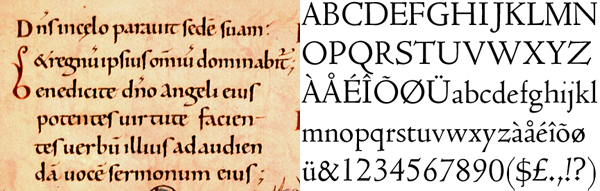 Dn̄s incelo parauit sedē suam:
&regnū ipsius om̄iū dominabit̄;
Benedicite dn̄o angeli eius
potentes uirtute facien
tes uerbū illius ad audien
dā uocē sermonum eius;
ABCDEFGHIJKLMN
OPQRSTUVWXYZ
ÀÅÉÎÕØÜabcdefghijkl
mnopqrstuvwxyzàåéîõø
ü&1234567890($£.,!?)